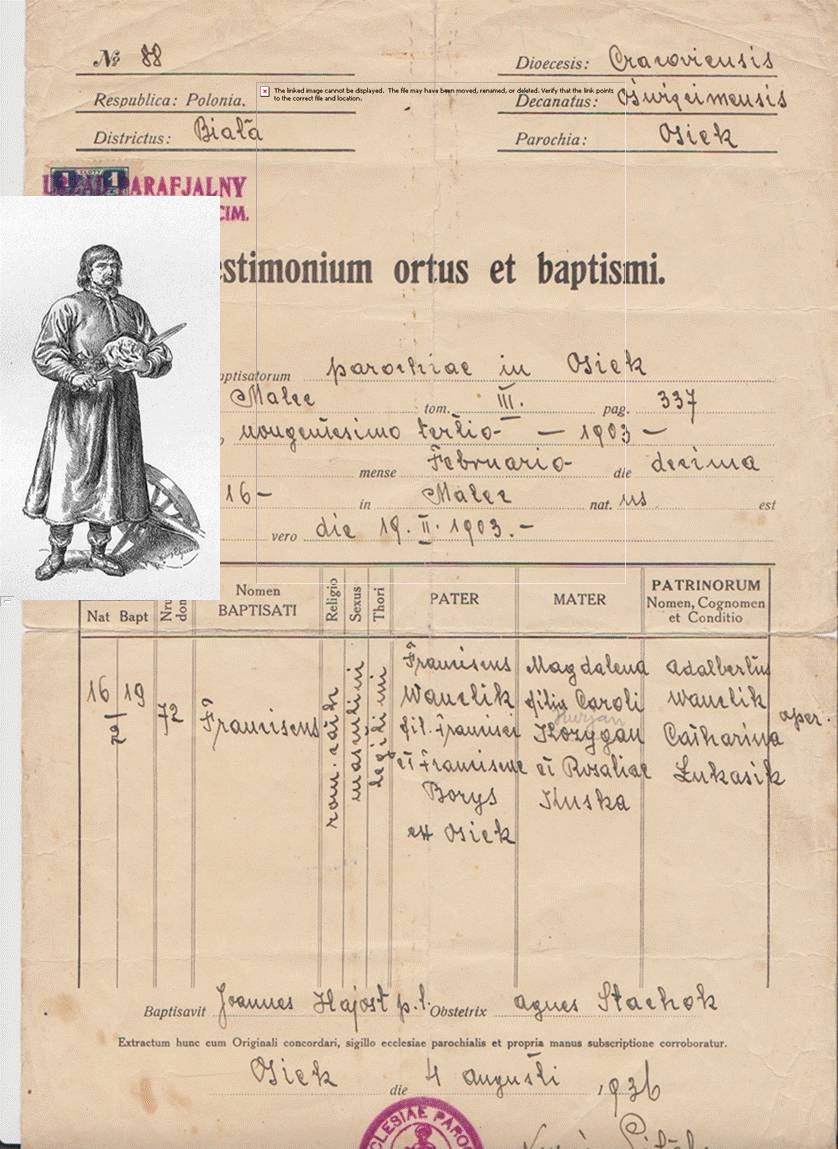 № 88
Dioecesis: Cracoviensis
The linked image cannot be displayed. The file may have been moved, renamed, or deleted. Verify that the link points
to the correct file and location.
Respublica: Polonia.
Decanatus: Oswięcimensis
Districtus: Biała
Parochia: Osiek
1 1
URZĄD PARAFJALNY
CIM.
estimonium ortus et baptismi.
aptisatorum parochiae in Osiek
Malec tom. III. pag. 337
nongentesimo tertio — 1903 —
mense Februario die decima
16 — in Malec nat. us est
vero die 19. II. 1903. —
Nat Bapt Nru dom Nomen BAPTISATI Religio Sexus Thori PATER MATER PATRINORUM Nomen, Cognomen et Conditio
16 19 72 Franciscus rom. cath masculini legitimi
2
Franciscus Magdalena Adalbertus
Wanclik filia Caroli Wanclik
fil. Francisci Korygan Catharina oper.
et Franciscae et Rosaliae Łukasik
Borys Kuska
ex Osiek
Baptisavit Joannes Hajost p. l. Obstetrix Agnes Stachok
Extractum hunc cum Originali concordari, sigillo ecclesiae parochialis et propria manus subscriptione corroboratur.
Osiek die 4 augusti 1936
CLESIAE PAROC